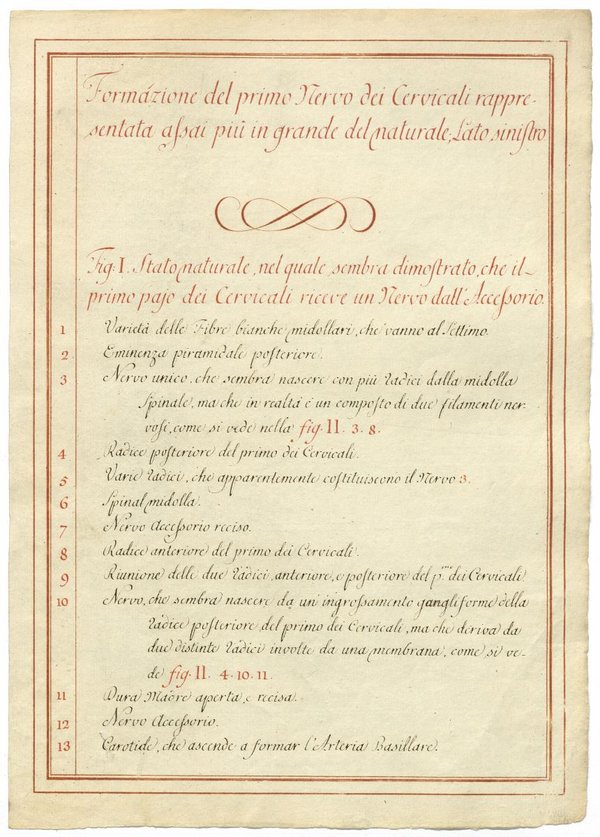 Formázione del primo Nervo dei Cervicali rappre-
sentata assai più in grande del naturale, Lato sinistro
Fig: I. Stato naturale, nel quale sembra dimostrato, che il
primo pajo dei Cervicali riceve un Nervo dall'Accessorio.
1 Varietà delle Fibre bianche midollari, che vanno al Settimo.
2 Eminenza piramidale posteriore.
3 Nervo unico, che sembra nascere con più radici dalla midolla
Spinale, ma che in realtà è un composto di due filamenti ner-
vosi, come si vede nella fig. II. 3. 8.
4 Radice posteriore del primo dei Cervicali.
5 Varie radici, che apparentemente costituiscono il Nervo 3.
6 Spinal midolla.
7 Nervo Accessorio reciso.
8 Radice anteriore del primo dei Cervicali.
9 Riunione delle due radici, anteriore, e posteriore del p.mo dei Cervicali
10 Nervo, che sembra nascere da un' ingrossamento gangliforme della
radice posteriore del primo dei Cervicali, ma che deriva da
due distinte radici involte da una membrana, come si ve-
de fig. II. 4. 10. 11.
11 Dura Madre aperta e recisa.
12 Nervo Accessorio.
13 Carotide, che ascende a formar l'Arteria Basillare.